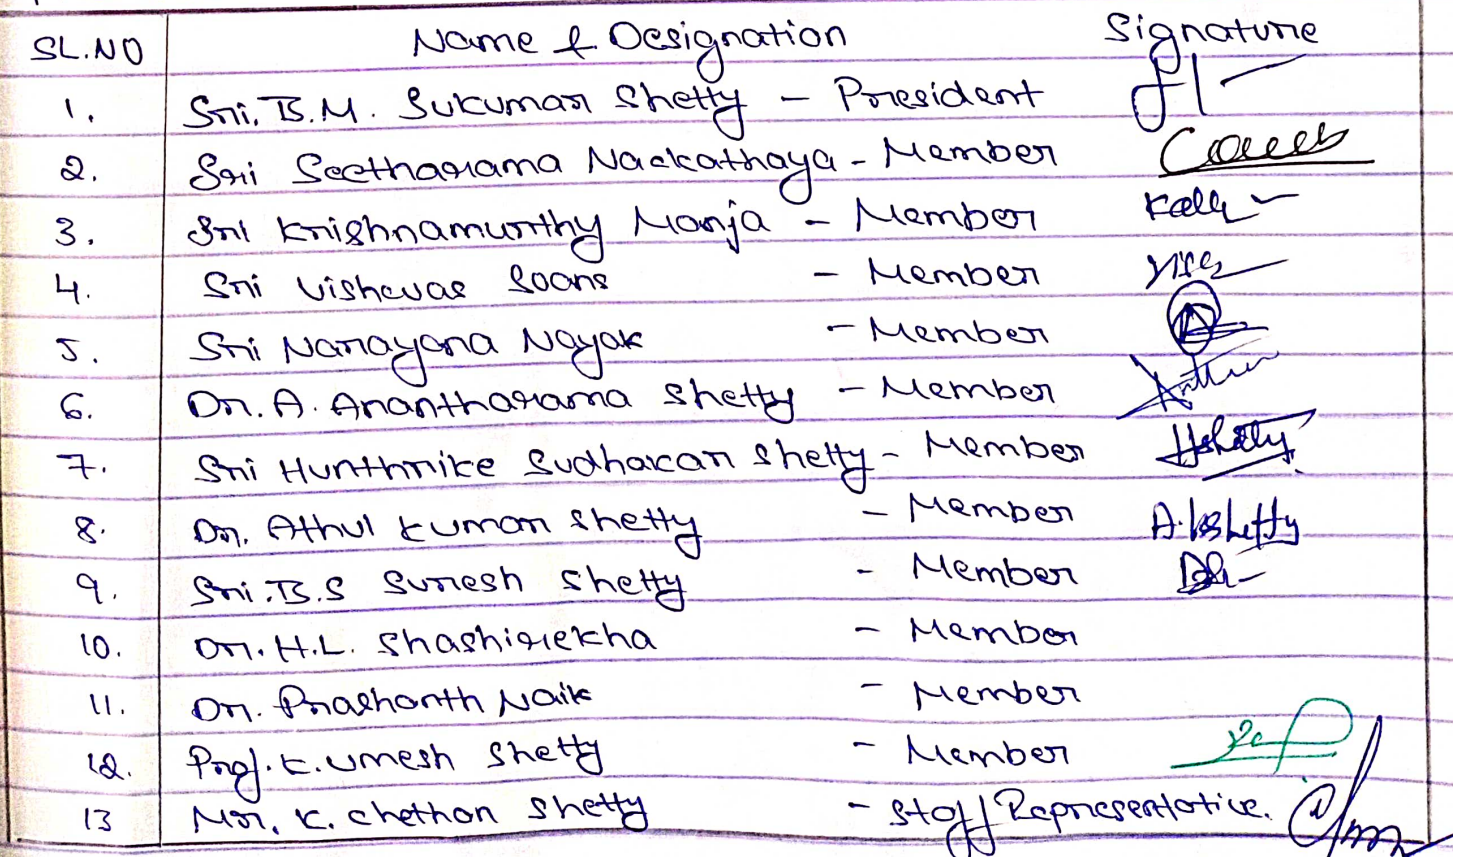 SL.NO Name & Designation Signature
1. Sri. B.M. Sukumar Shetty - President
2. Sri Seetharama Nackathaya - Member
3. Sri Krishnamurthy Manja - Member
4. Sri Vishwas Soans - Member
5. Sri Narayana Nayak - Member
6. Dr. A. Anantharama Shetty - Member
7. Sri Hunthrike Sudhakar Shetty - Member Hshetty
8. Dr. Athul Kumar Shetty - Member A.kshetty
9. Sri. B.S Suresh Shetty - Member
10. Dr. H.L. Shashirekha - Member
11. Dr. Prashanth Naik - Member
12. Prof. K. Umesh Shetty - Member
13 Mr. K. Chethan Shetty - Staff Representative.